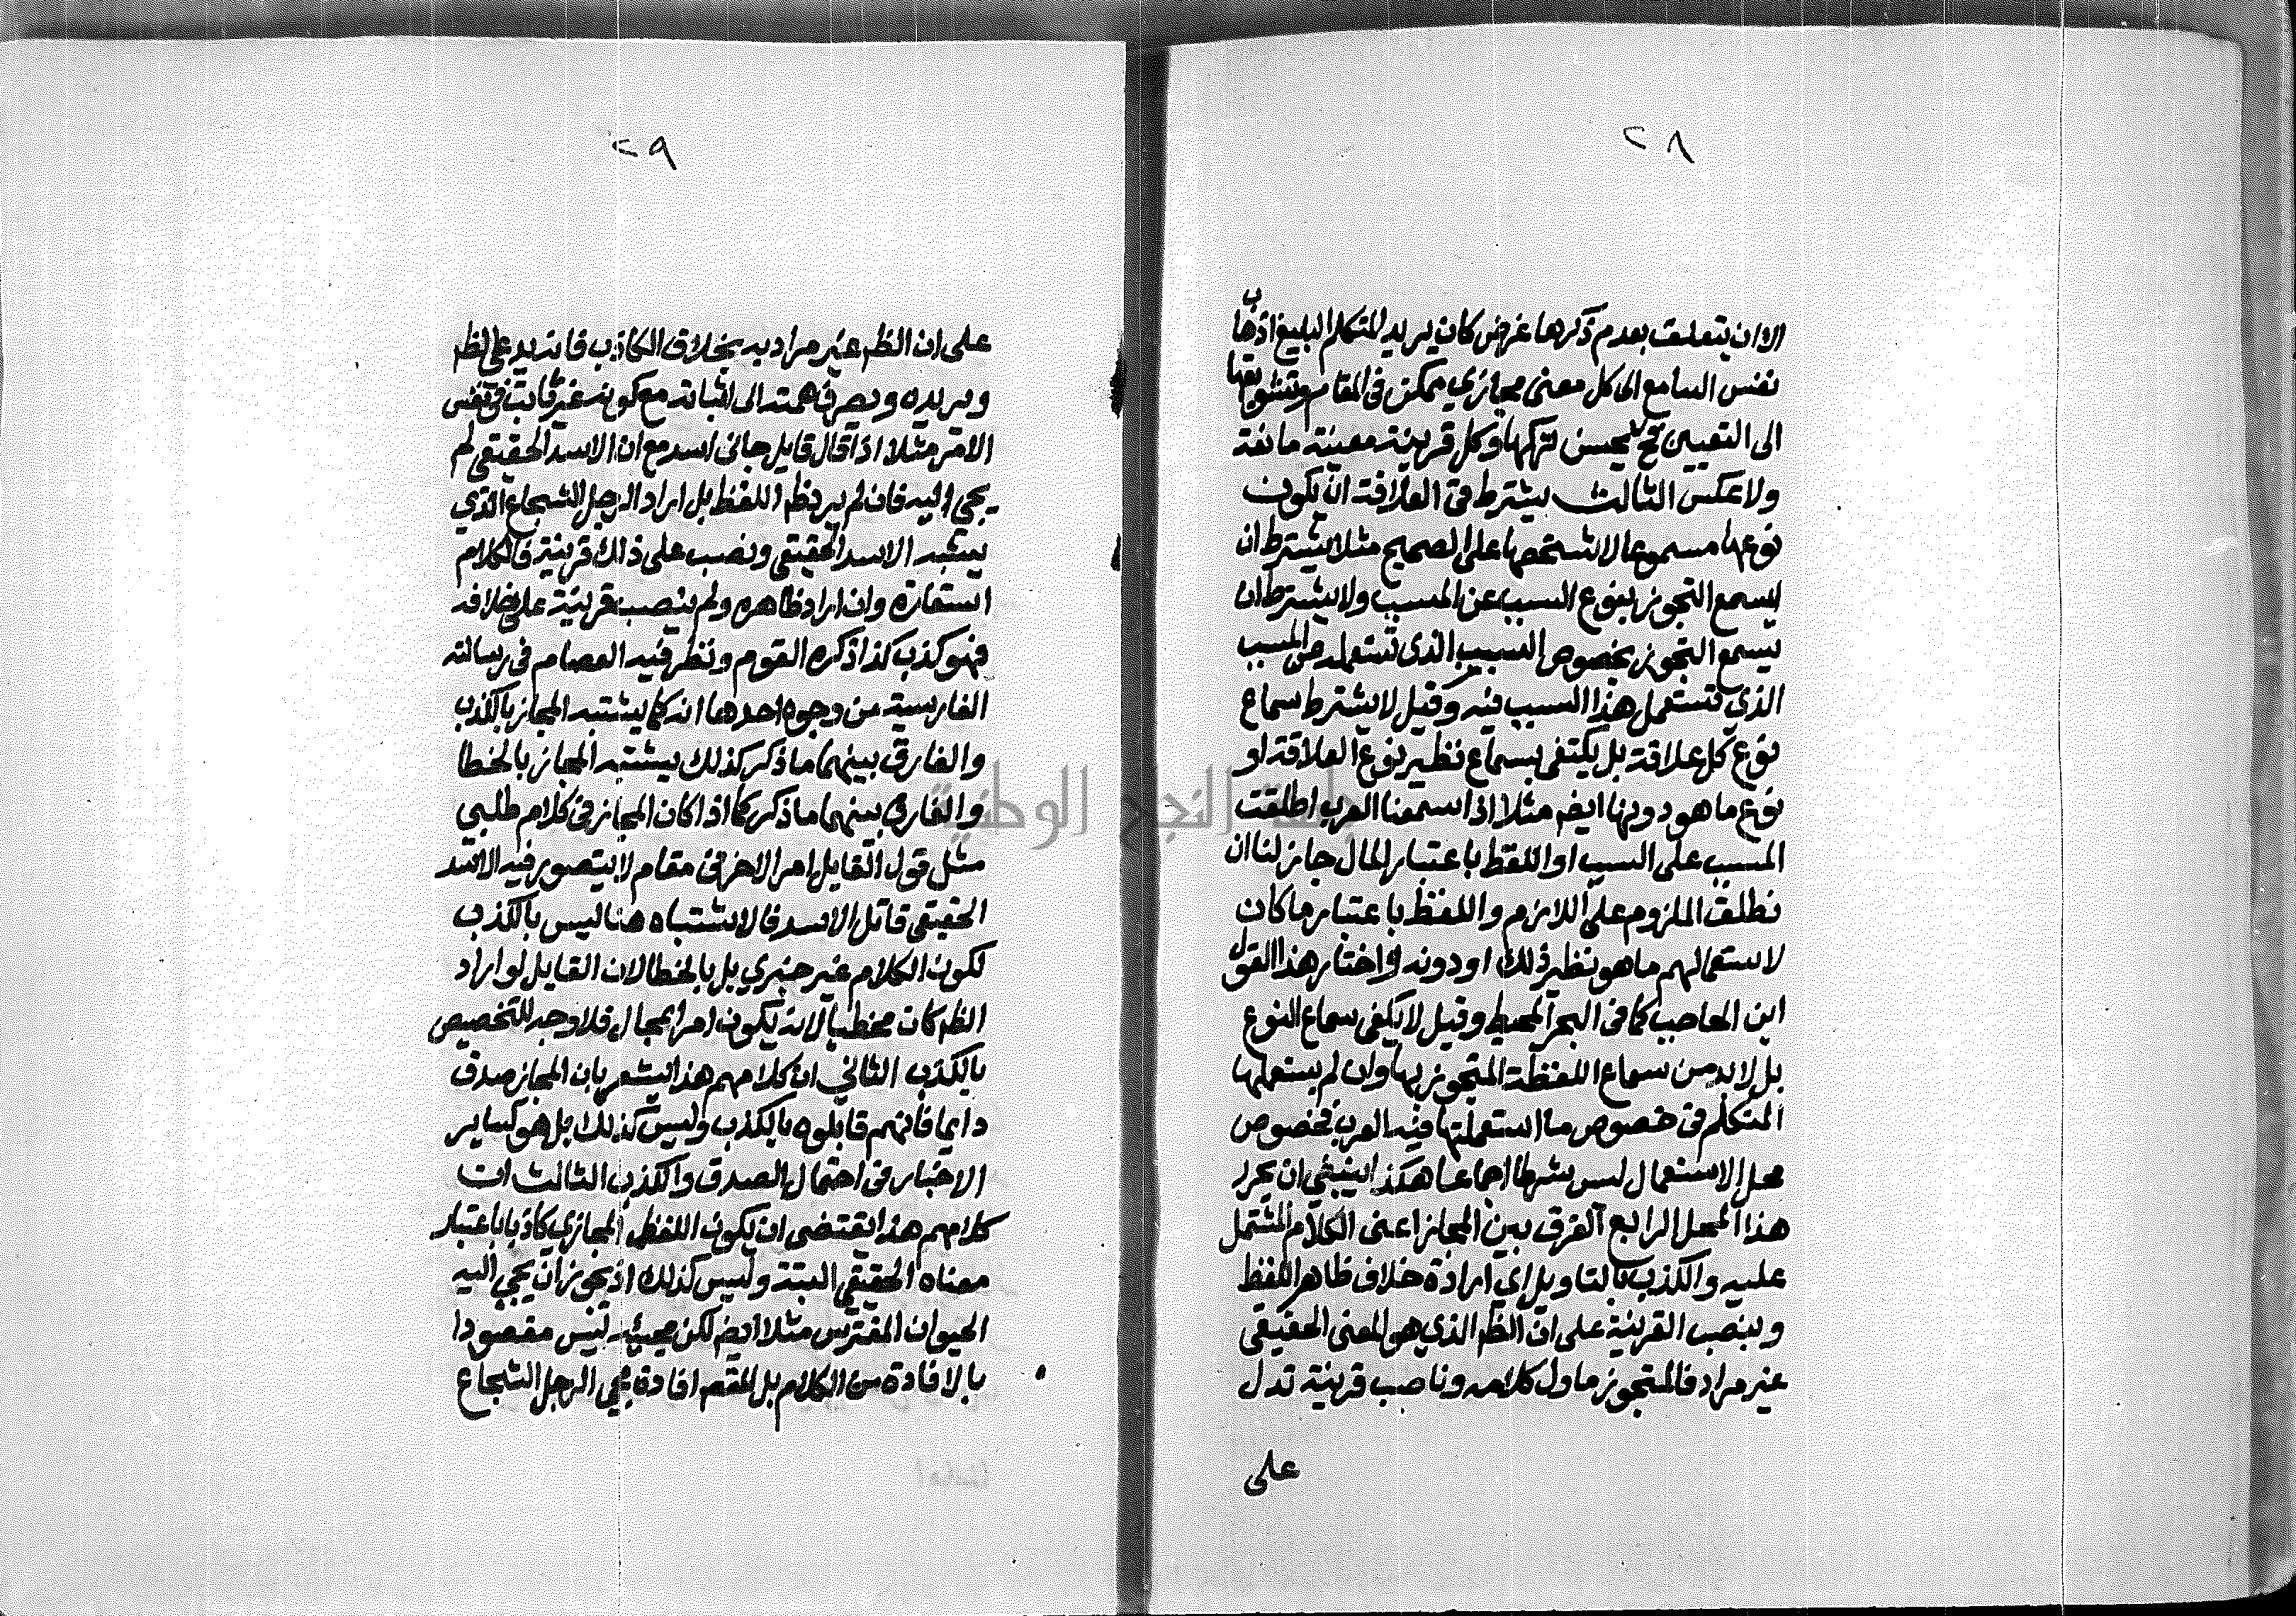 ٢٨
الا ان يتعلق بعدم ذكرها غرض كان يريد المتكلم البليغ اذهاب
نفس السامع الى كل معنى مجازي ممكن في المقام وتشويقها
الى التعيين فح يحسن تركها وكل قرينة معينة مانعة
ولا عكس الثالث يشترط في العلاقة ان يكون
نوعها مسموعا لا شخصها على الصحيح مثلا يشترط ان
يسمع التجوز بنوع السبب عن المسبب ولا يشترط ان
يسمع التجوز بخصوص السبب الذي تستعمله في المسبب
الذي تستعمل هذا السبب فيه وقيل لا يشترط سماع
نوع كل علاقة بل يكتفى بسماع نظير نوع العلاقة او
نوع ما هو دونها ايضم مثلا اذا سمعنا العرب اطلقت
المسبب على السبب او اللفظ باعتبار المال جاز لنا ان
نطلق الملزوم على اللازم واللفظ باعتبار ما كان
لاستعمالهم ما هو نظير ذلك او دونه واختار هذا القول
ابن الحاجب كما في البحر المحيط وقيل لا يكفي سماع النوع
بل لا بد من سماع اللفظة المتجوز بها وان لم يستعملها
المتكلم في خصوص ما استعملتها فيه العرب فخصوص
محل الاستعمال ليس شرطا اجماعا هكذا ينبغي ان يحرر
هذا المحل الرابع الفرق بين المجاز اعنى الكلام المشتمل
عليه والكذب بالتاويل اي ارادة خلاف ظاهر اللفظ
وبنصب القرينة على ان الظم الذي هو المعنى الحقيقي
غير مراد فالمتجوز ماول كلامه وناصب قرينة تدل
على
٢٩
على ان الظم غير مراد به بخلاف الكاذب فانه يدعي الظم
ويريده ويصرف همته الى اثباته مع كونه غير ثابت في نفس
الامر مثلا اذا قال قايل جاني اسد مع ان الاسد الحقيقي لم
يجي اليه فان لم يرد ظم اللفظ بل اراد الرجل الشجاع الذي
يشبه الاسد الحقيقي ونصب على ذلك قرينة فالكلام
استعارة وان اراد ظاهره ولم ينصب قرينة على خلافه
فهو كذب كذا ذكره القوم ونظر فيه العصام في رسالته
الفارسية من وجوه احدها انه كما يشتبه المجاز بالكذب
والفارق بينهما ما ذكر كذلك يشتبه المجاز بالخطا
والفارق بينهما ما ذكر كما اذا كان المجاز في كلام طلبي
مثل قول القايل امرا لاخر في مقام لا يتصور فيه الاسد
الحقيقي قاتل الاسد فالاشتباه هنا ليس بالكذب
لكون الكلام غير خبري بل بالخطا لان القايل لو اراد
الظم كان مخطيا لانه يكون امرا بمحال فلا وجه للتخصيص
بالكذب الثاني ان كلامهم هذا يشعر بان المجاز صدق
دايما فانهم قابلوه بالكذب وليس كذلك بل هو كساير
الاخبار في احتمال الصدق والكذب الثالث ان
كلامهم هذا يقتضي ان يكون اللفظ المجازي كاذبا باعتبار
معناه الحقيقي البتة وليس كذلك اذ يجوز ان يجي اليه
الحيوان المفترس مثلا ايضم لكن مجيئه ليس مقصودا
بالافادة من الكلام بل المقصم افادة مجي الرجل الشجاع